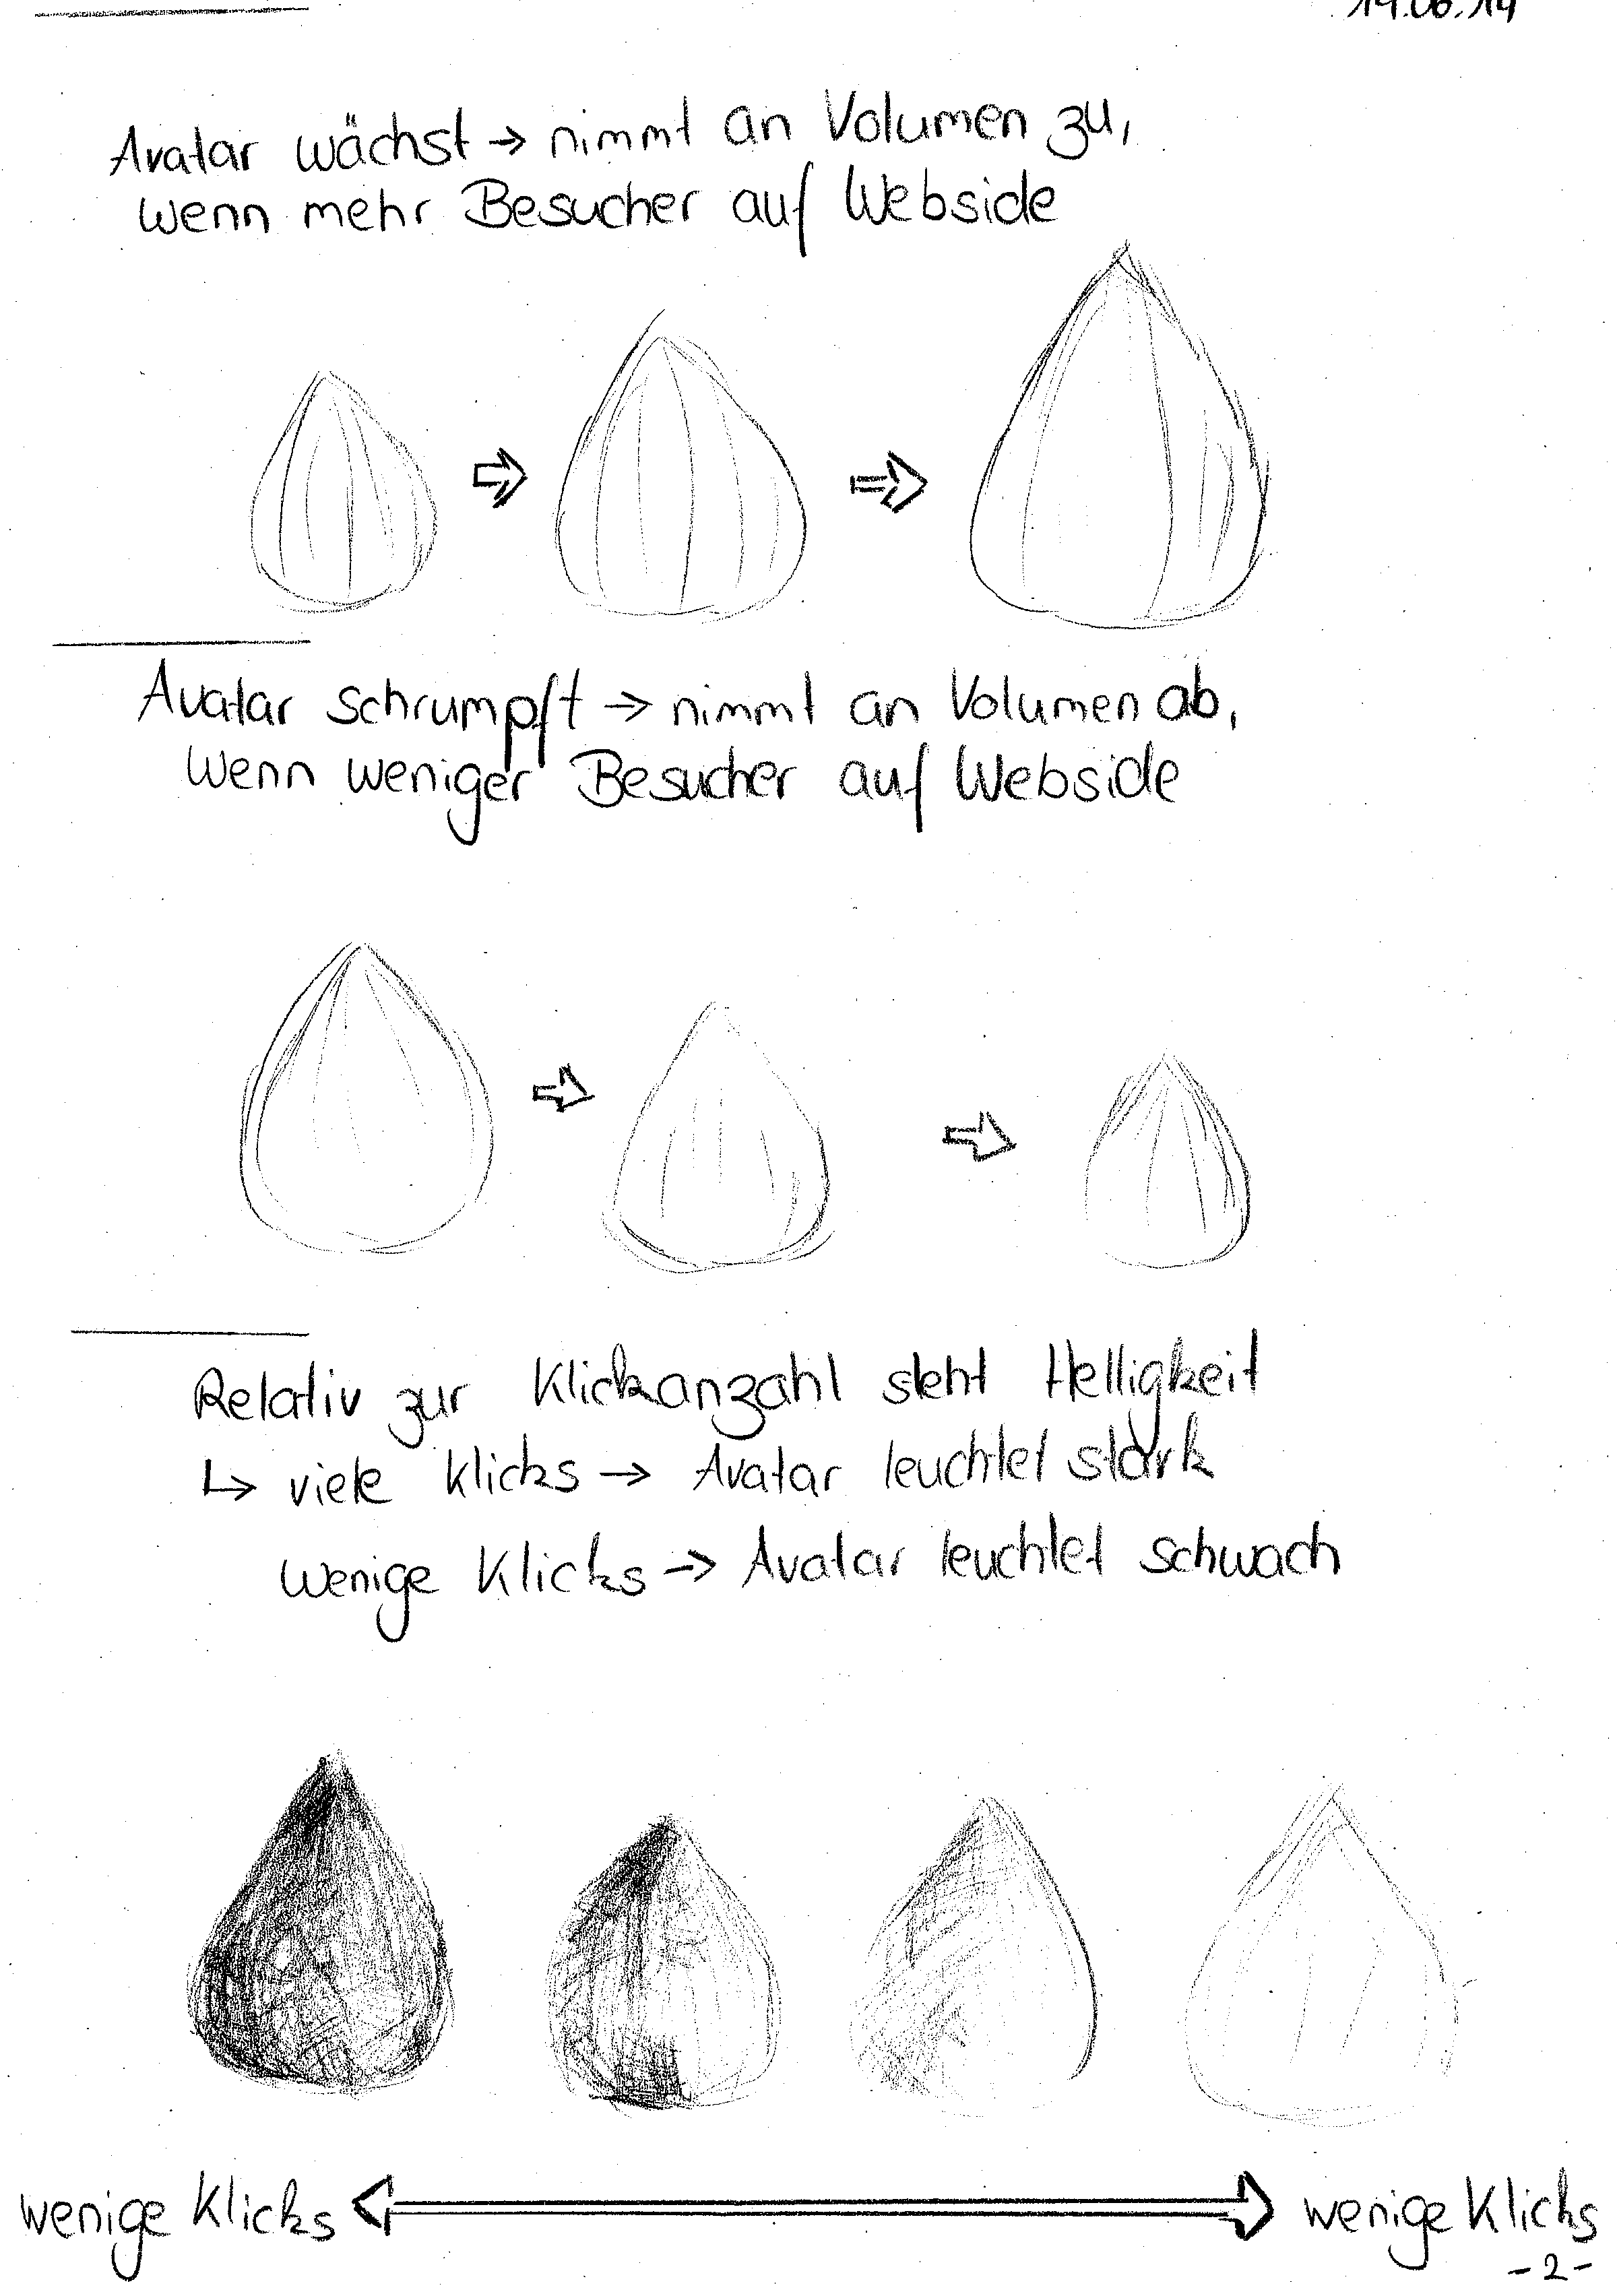 19.06.14
Avatar wächst → nimmt an Volumen zu,
wenn mehr Besucher auf Webside
Avatar schrumpft → nimmt an Volumen ab,
wenn weniger Besucher auf Webside
Relativ zur Klickanzahl steht Helligkeit
↳ viele Klicks → Avatar leuchtet stark
wenige Klicks → Avatar leuchtet schwach
wenige Klicks
wenige Klicks
-2-